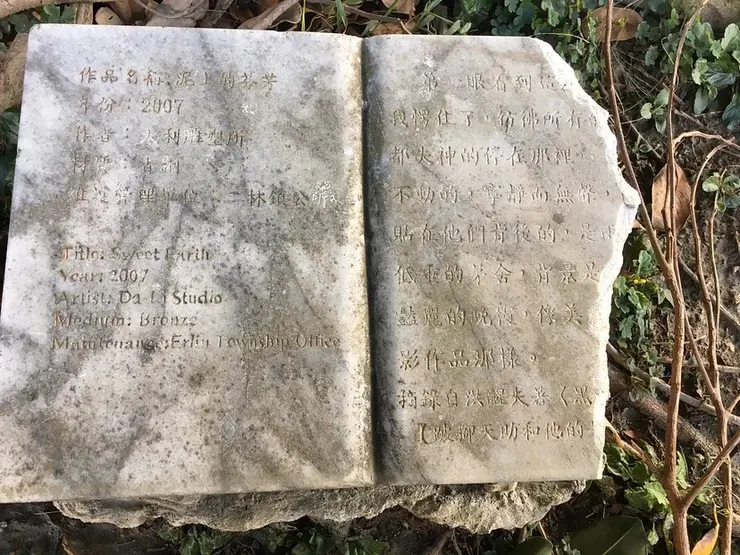 作品名稱:泥土的芬芳
年份:2007
作者:大利雕塑所
材質:青銅
維護管理單位:二林鎮公所
Title: Sweet Earth
Year: 2007
Artist: Da Li Studio
Medium: Bronze
Maintenance:Erlin Township Office
第一眼看到這
我愣住了,彷彿所有的
都失神的停在那裡。
不動的,寧靜而無聲,
貼在他們背後的,是
低垂的茅舍,背景是
豔麗的晚霞,像美
影作品那樣。
摘錄自洪醒夫著〈黑
【跛腳天助和他的